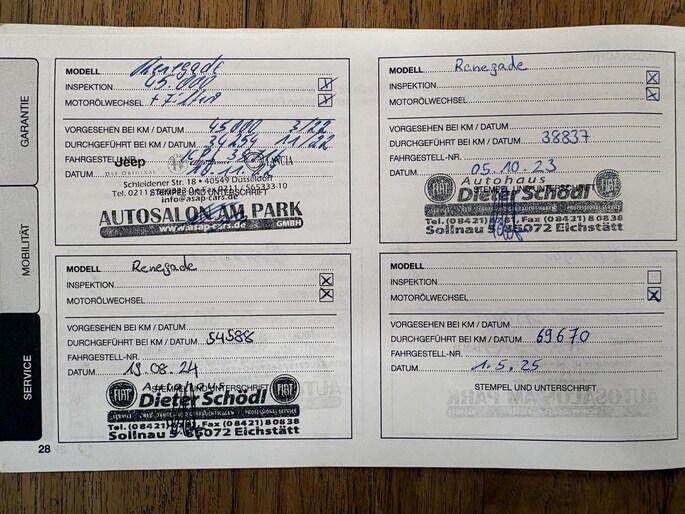 GARANTIE
MOBILITÄT
SERVICE
MODELL Renegade
INSPEKTION 45.000 X
MOTORÖLWECHSEL X
VORGESEHEN BEI KM / DATUM 45000 3/22
DURCHGEFÜHRT BEI KM / DATUM 34254 11/22
FAHRGESTELL-NR.
DATUM
Jeep
Schleidener Str. 18 • 40549 Düsseldorf
STEMPEL UND UNTERSCHRIFT
info@asap-cars.de
AUTOSALON AM PARK
www.asap-cars.de GMBH
MODELL Renegade
INSPEKTION X
MOTORÖLWECHSEL X
VORGESEHEN BEI KM / DATUM
DURCHGEFÜHRT BEI KM / DATUM 38837
FAHRGESTELL-NR.
DATUM 05.10.23
STEMPEL UND UNTERSCHRIFT
Autohaus
FIAT Dieter Schödl FIAT
Tel. (08421) Fax (08421) 80838
Sollnau 5 85072 Eichstätt
MODELL Renegade
INSPEKTION X
MOTORÖLWECHSEL X
VORGESEHEN BEI KM / DATUM
DURCHGEFÜHRT BEI KM / DATUM 54588
FAHRGESTELL-NR.
DATUM 19.08.24
STEMPEL UND UNTERSCHRIFT
Autohaus
FIAT Dieter Schödl FIAT
Tel. (08421) Fax (08421) 80838
Sollnau 5 85072 Eichstätt
MODELL
INSPEKTION
MOTORÖLWECHSEL X
VORGESEHEN BEI KM / DATUM
DURCHGEFÜHRT BEI KM / DATUM 69670
FAHRGESTELL-NR.
DATUM 1.5.25
STEMPEL UND UNTERSCHRIFT
28